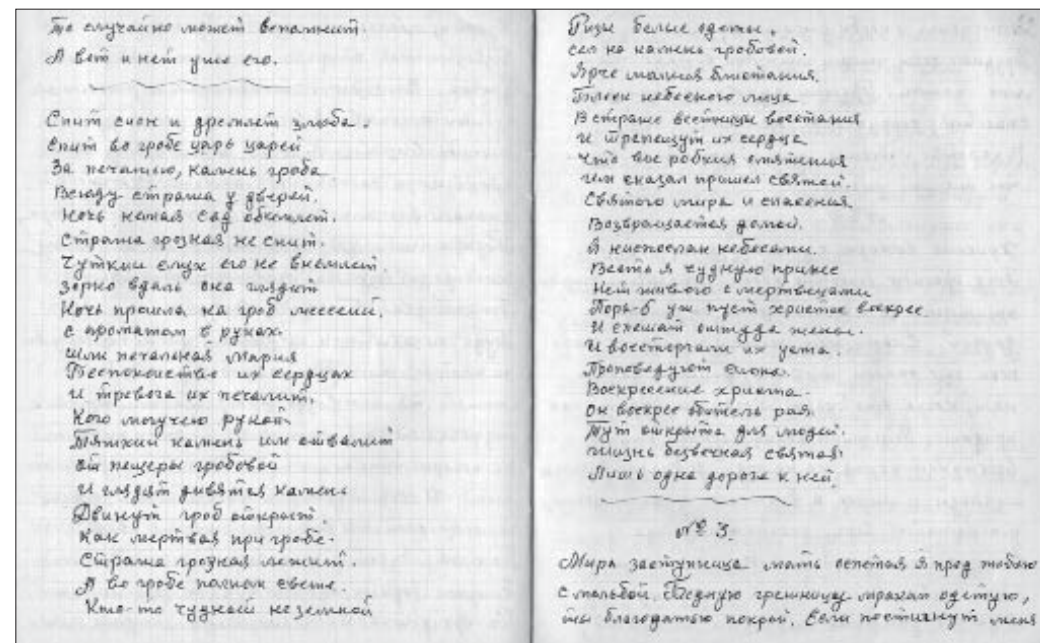 То случайно может вспомнит.
А вот и нет уже его.
Спит сион и дремлет злоба.
Спит во гробе царь царей
За печатью, камень гроба
Всюду стража у дверей.
Ночь немая сад объемлет.
Стража грозная не спит.
Чуткий слух его не внемлет
Зорко вдаль она глядит
Ночь прошла на гроб мессеии.
с ароматам в руках.
Шли печальная Мария
Беспокоиство их сердцах
И тревога их печалит.
Кого могучею рукой.
Тяжкий камень им отвалит
от пещеры гробовой
И глядят дивятся камень.
Двинут гроб открыт
Как мертвая при гробе.
Стража грозная лежит.
А во гробе полном свете.
Кто-то чуднай неземной
Ризы белые одеты.
сел на камень гробовой.
Ярче молния блистания.
Блеск небесного лица
В страше вестницы восстания
И трепещут их сердца
Что вы робкия смятения
им сказал пришел святой.
Святого мира и спасения.
Возвращается домой.
Я ниспослан небесами.
Весть я чудную принес
Нет живого с мертвецами
уж пуст христос воскрес
И спешат оттуда жены.
И восторгали их уста.
Проповедуют сиона.
Воскресение христа.
Он воскрес обитель рая.
Тут открыта для людей.
жизнь безвечная святая.
Лишь одна дорога к ней
№ 3.
Мира заступница мать опетая я пред тобою
с мольбой. Бедную грешницу мраком одетую,
ты благодатью покрой. Если постигнут меня